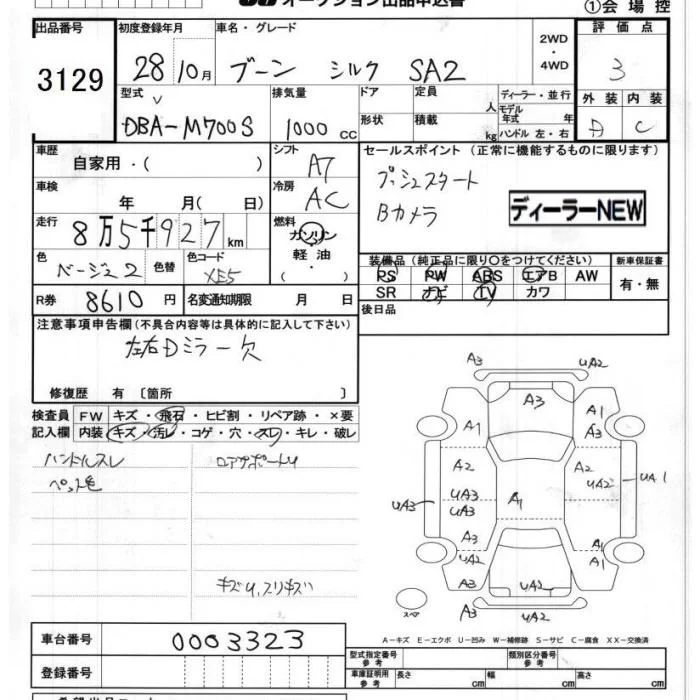 オークション出品申込書
①会場控
出品番号
初度登録年月
車名・グレード
2WD・4WD
評価点
3129
28 10月
ブーン シルク SA2
3
型式
排気量
ドア
定員
人
ディーラー・並行
外装
内装
DBA-M700S
1000 cc
形状
積載
kg
モデル年式 年
ハンドル 左・右
D
C
車歴
自家用・( )
シフト
A7
セールスポイント(正常に機能するものに限ります)
車検
年 月( 日)
冷房
AC
プッシュスタート
Bカメラ
ディーラーNEW
走行
8万5千927km
燃料
ガソリン
軽油
・( )
色
ベージュ2
色替
色コード
XE5
装備品(純正品に限り○をつけてください)
新車保証書
PS PW ABS エアB AW
SR ナビ TV カワ
有・無
R券
8610円
名変通知期限 月 日
後日品
注意事項申告欄(不具合内容等は具体的に記入して下さい)
左右Dミラー欠
修復歴 有〔箇所 〕
検査員記入欄
FW キズ・飛石・ヒビ割・リペア跡・×要
内装 キズ・汚レ・コゲ・穴・スレ・キレ・破レ
ハンドルスレ
ペット毛
ロアサポートU
キズU、スリキズ
A3
UA2
A3
A1
A1
A3
A2
A2
UA2
UA1
UA3
UA3
UA3
A1
A3
A1
UA2
A1
A3
UA2
A3
UA2
スペア
A-キズ E-エクボ U-凹み W-補修跡 S-サビ C-腐食 XX-交換済
車台番号
0003323
型式指定番号 参考
類別区分番号 参考
登録番号
車庫証明用 参考
長さ cm
幅 cm
高さ cm